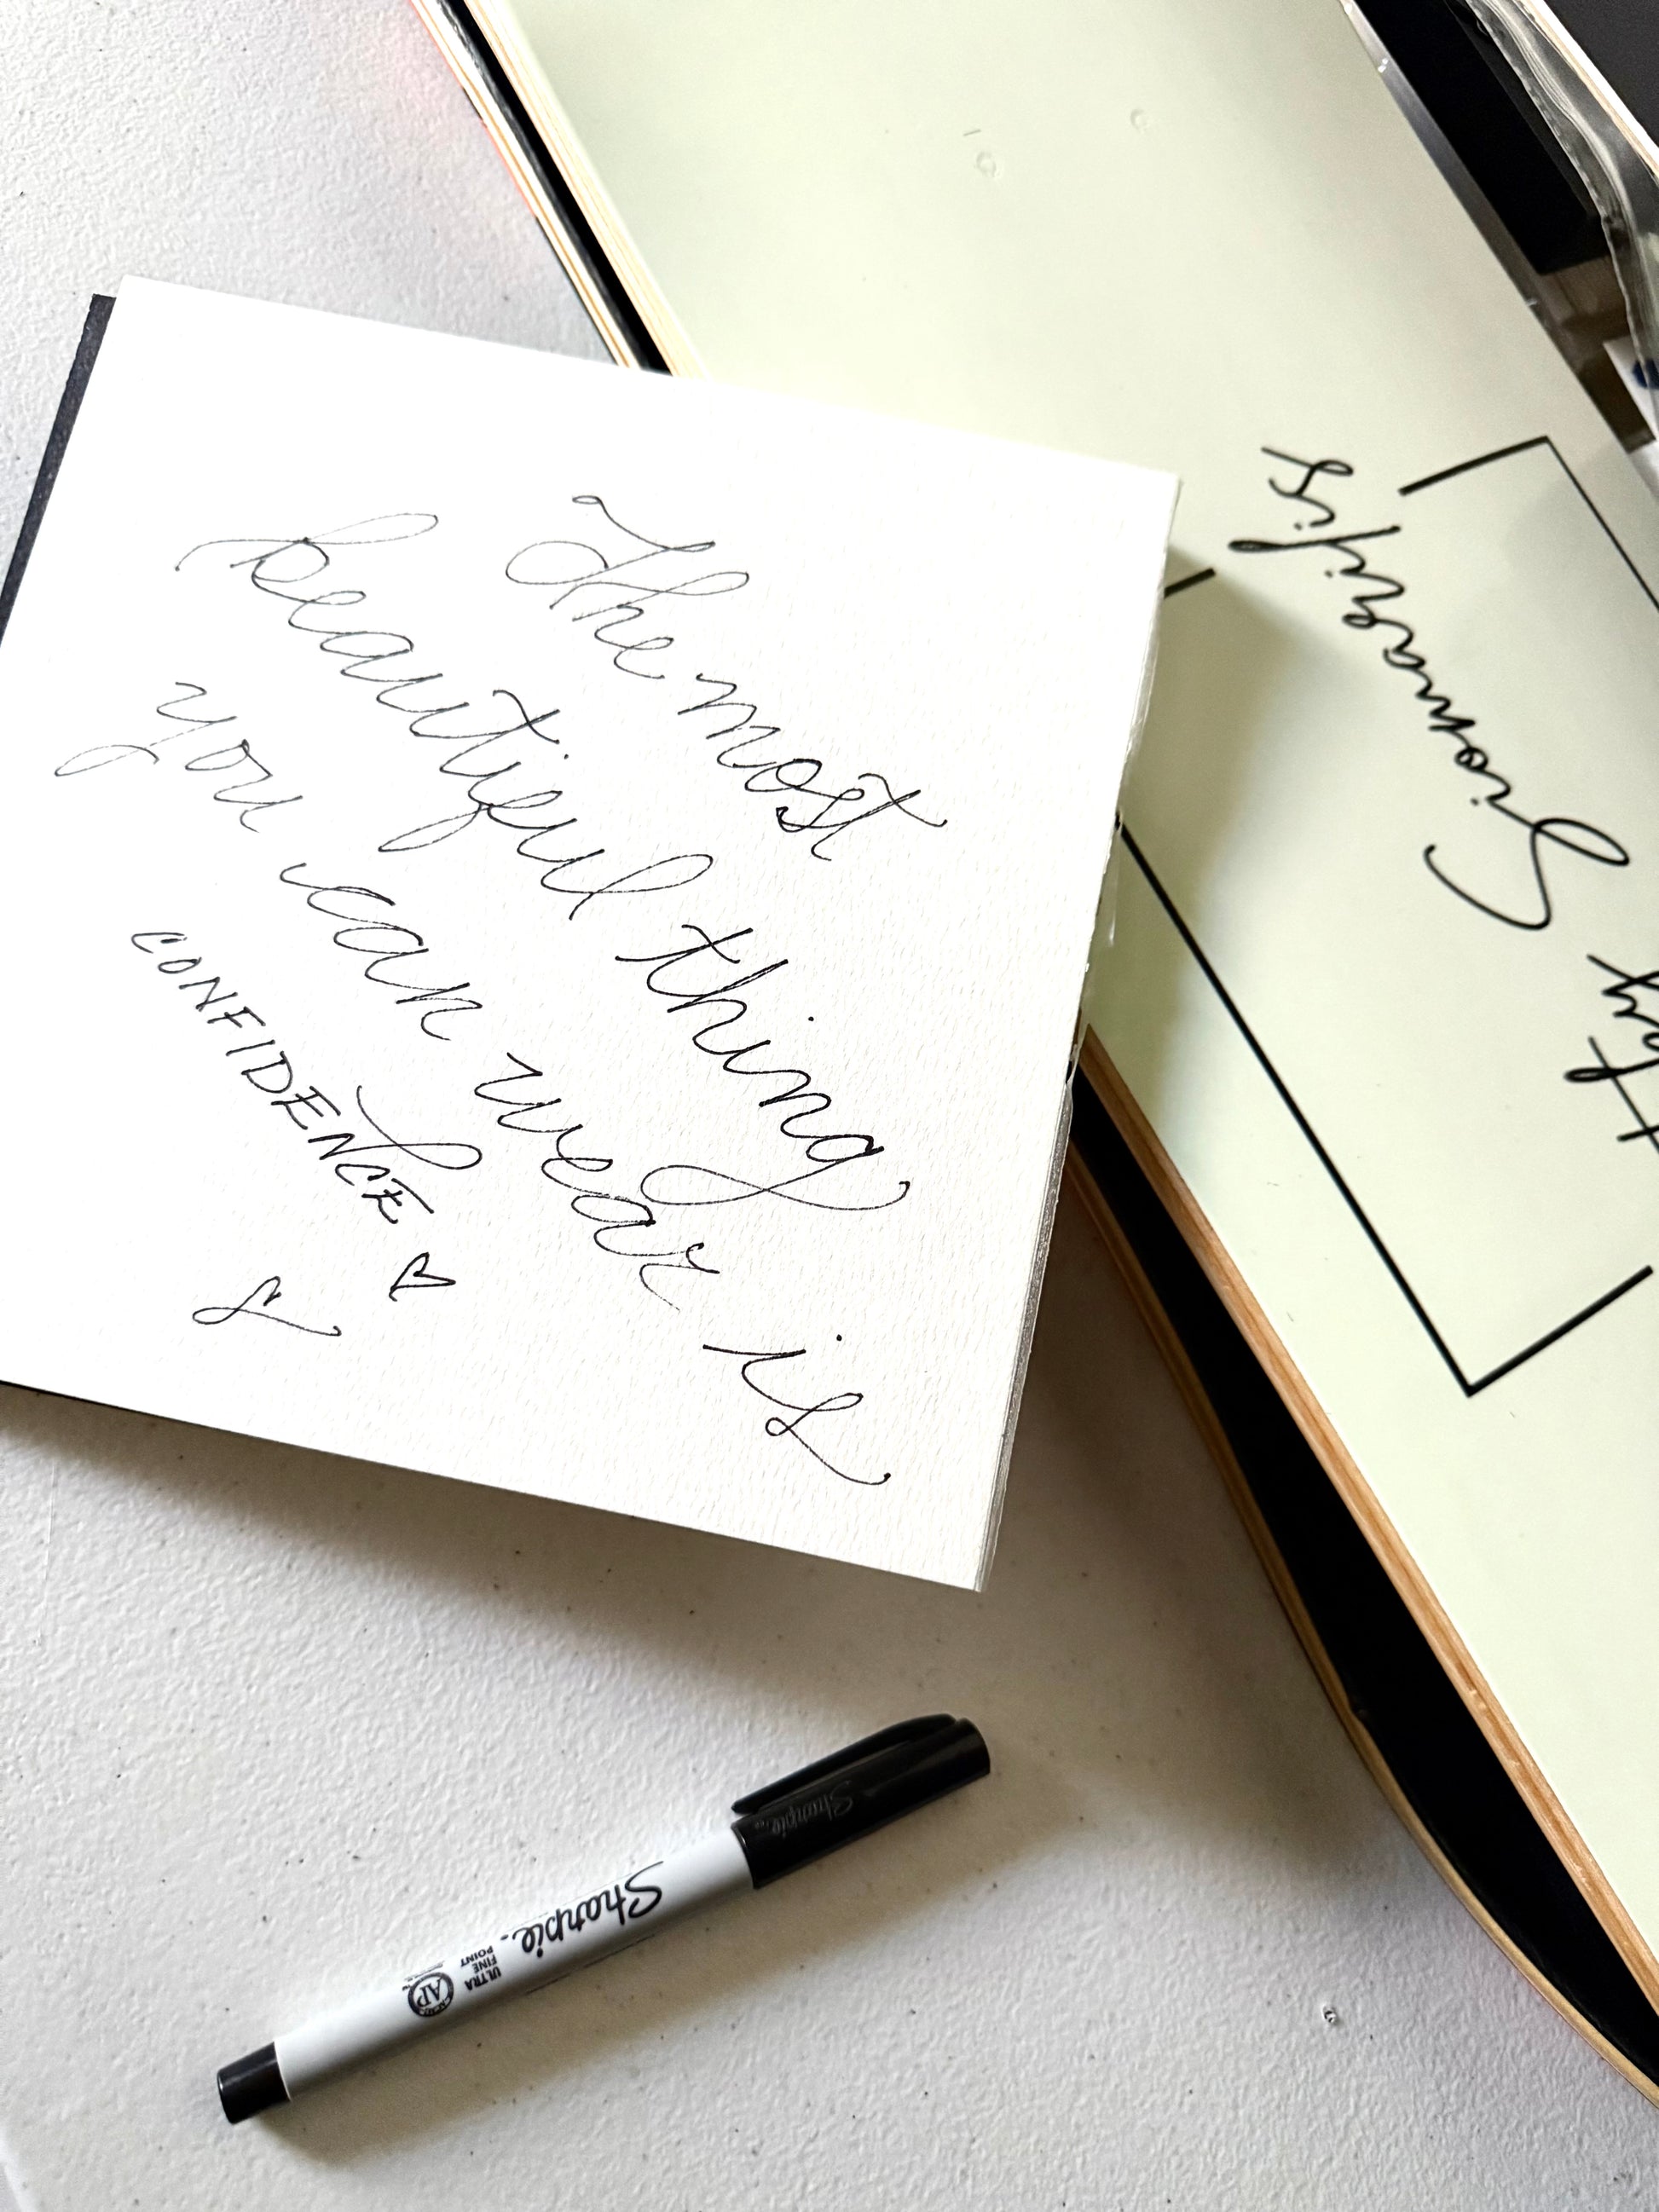 The most
beautiful thing
you can wear is
CONFIDENCE ♡
Sharpie
ULTRA
FINE
POINT
AP
Sharpie